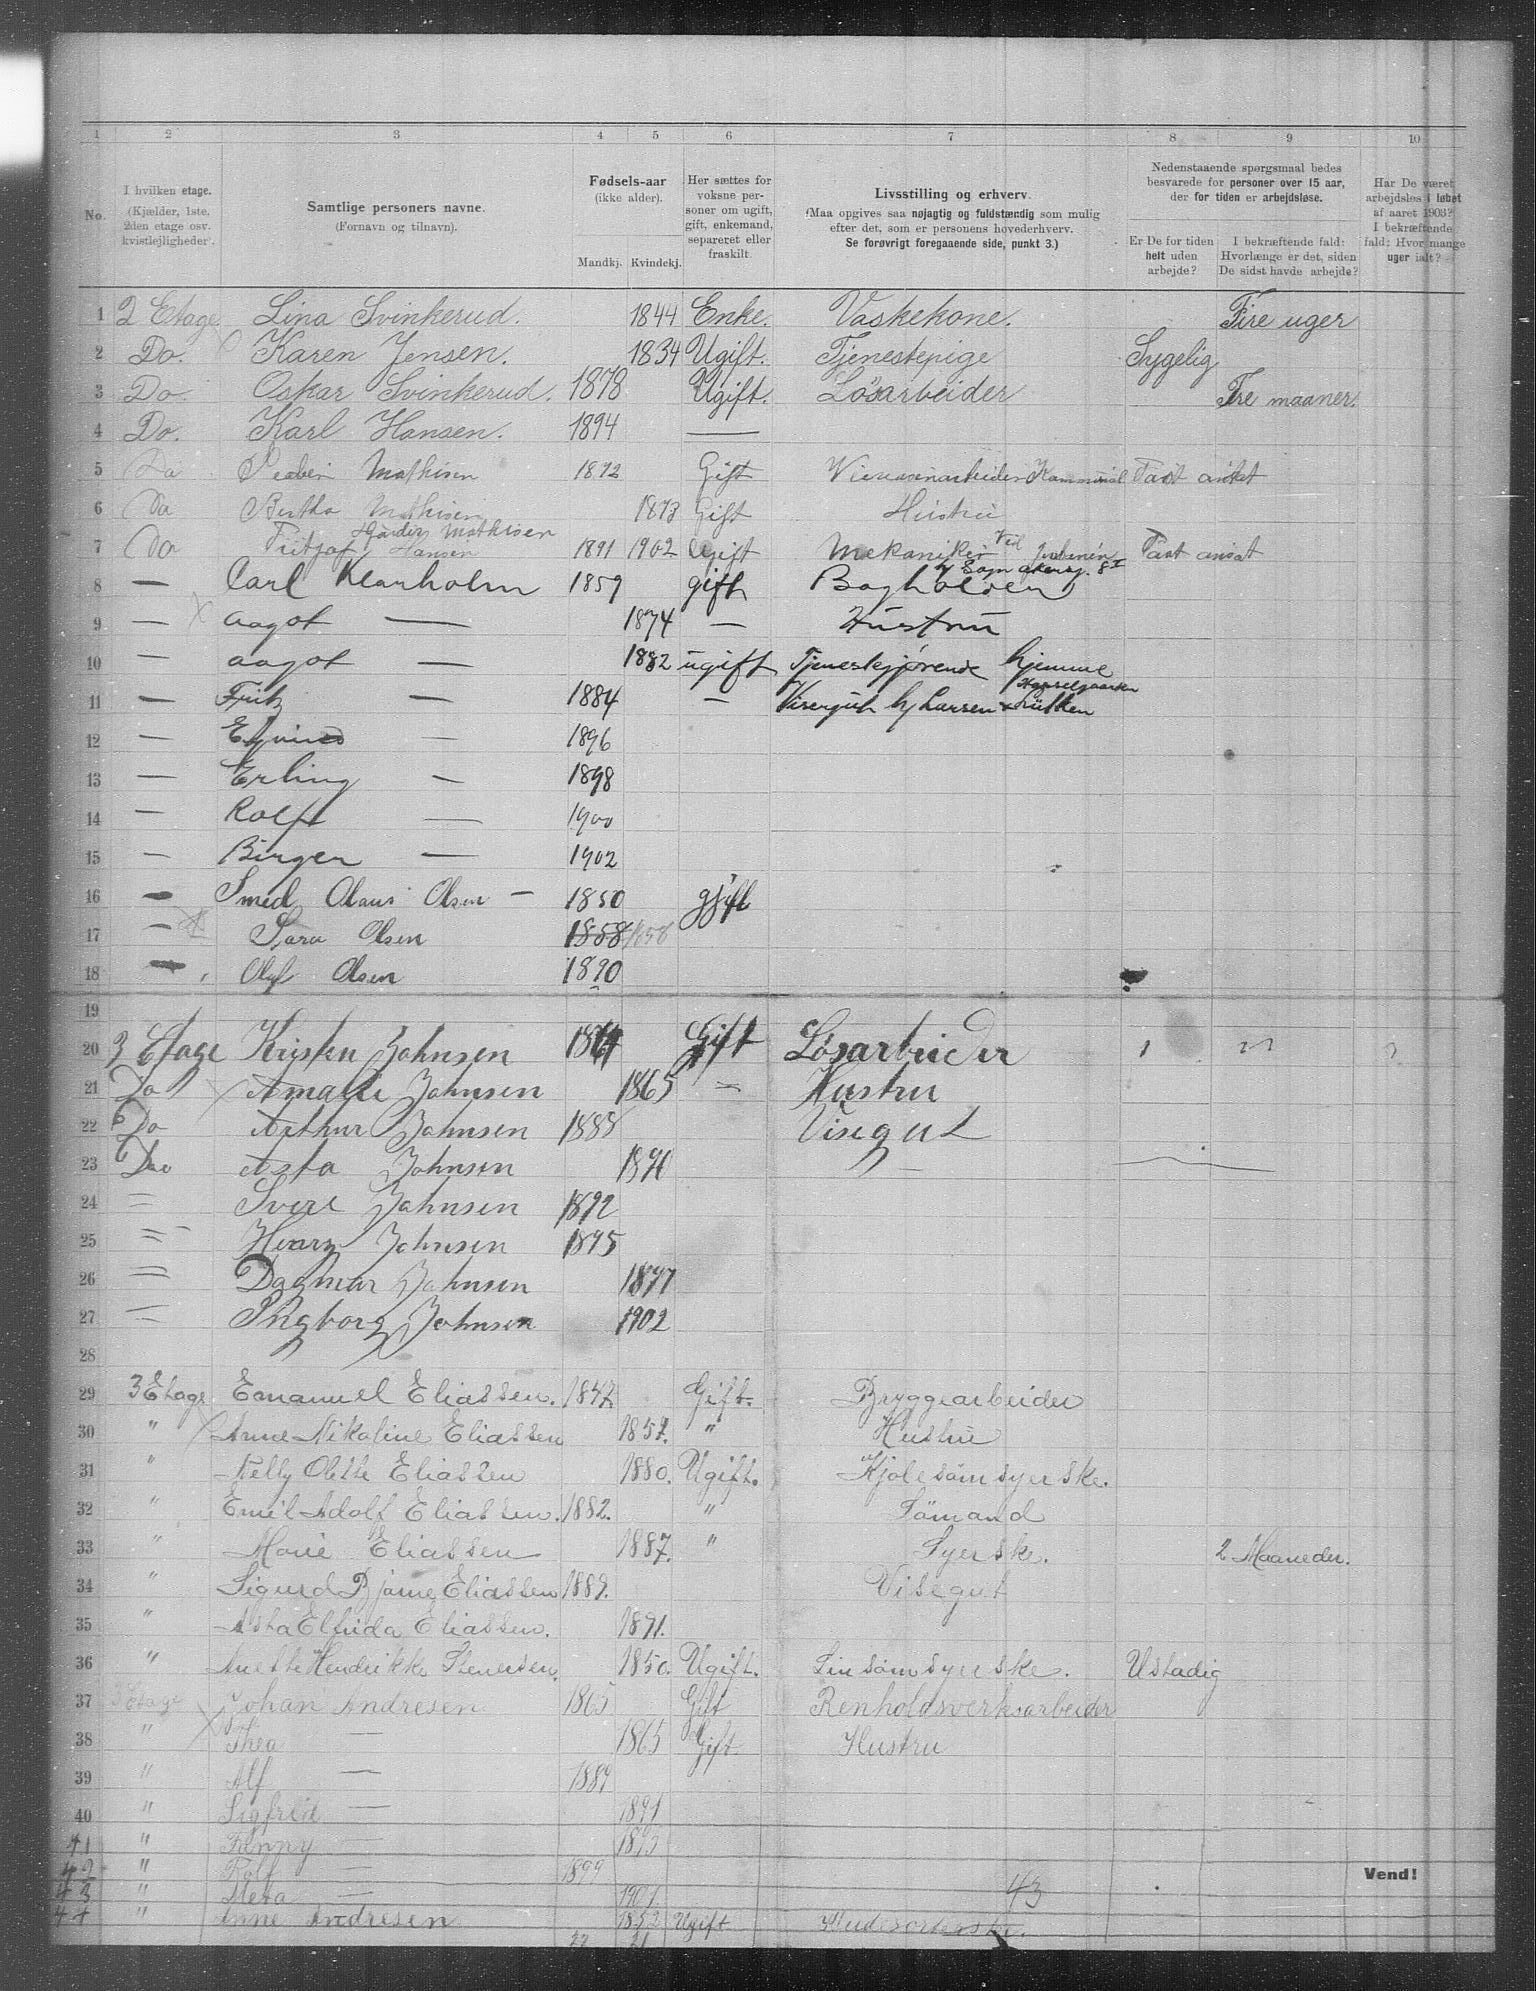 1 2 3 4 5 6 7 8 9 10
No.
I hvilken etage.
(Kjælder, 1ste,
2den etage osv.
kvistlejligheder.
Samtlige personers navne.
(Fornavn og tilnavn).
Fødsels-aar
(ikke alder).
Mandkj. Kvindekj.
Her sættes for
voksne per-
soner om ugift,
gift, enkemand,
separeret eller
fraskilt.
Livsstilling og erhverv.
(Maa opgives saa nøjagtig og fuldstændig som mulig
efter det, som er personens hovederhverv.
Se forøvrigt foregaaende side, punkt 3.)
Nedenstaaende spørgsmaal bedes
besvarede for personer over 15 aar,
der for tiden er arbejdsløse.
Er De for tiden
helt uden
arbejde?
I bekræftende fald:
Hvorlænge er det, siden
De sidst havde arbejde?
Har De været
arbejdsløs i løbet
af aaret 1903?
I bekræftende
fald: Hvor mange
uger ialt?
1 2 Etage Lina Svinkerud. 1844 Enke. Vaskekone. Fire uger
2 Do. Karen Jensen. 1834 Ugift. Tjenestepige Sygelig
3 Do. Oskar Svinkerud. 1878 Ugift. Løsarbeider Tre maaner.
4 Do. Karl Hansen. 1894 —
5 Do Mathisen 1872 Gift Fast ansat
6 Do Bertha Mathisen 1873 Gift Hustru
Mathisen
7 Do Fritjof Hansen 1891 1902 Ugift Mekaniker Ved Fast ansat
8 — Carl Klarholm 1859 gift Bogholder
9 — Aagot — 1874 — Hustru
10 — Aagot — 1882 ugift Tjenestegjørende hjemme
11 — Fritz — 1884 — Visergut h/ Larsen &
12 — Eyvind — 1896
13 — Erling — 1898
14 — Rolf — 1900
15 — Birger — 1902
16 — Smed Olaus Olsen — 1850 gjift
17 — Sara Olsen 1858 1858
18 — Olaf Olsen 1890
19
20 3 Etage Kristen Johnsen Gift Løsarbeider 1
21 Do Amalie Johnsen 1865 — Hustru
22 Do Arthur Johnsen 1888 Visegut
23 Do Asta Johnsen 1890 —
24 = Svere Johnsen 1892
25 = Henry Johnsen 1895
26 = Dagmar Johnsen 1897
27 = Ingborg Johnsen 1902
28
29 3 Etage Emanuel Eliassen. 1847. Gift. Bryggearbeider
30 " Anne Nikoline Eliassen 1857. " Hustru
31 " Nelly Olette Eliassen 1880. Ugift. Kjolesømsyerske.
32 " Emil Adolf Eliassen. 1882. " Sømand
33 " Marie Eliassen 1887. " Syerske. 2 Maaneder.
34 " Sigurd Bjarne Eliassen 1889. Visegut
35 " Asta Elfrida Eliassen. 1891.
36 " Anette Hendrikke Stenersen. 1850. Ugift. Linsømsyerske. Ustadig
37 3 Etage Johan Andresen 1865 Gift Renholdsverksarbeider
38 " Thea — 1865 Gift Hustru
39 " Alf — 1889
40 " Sigfrid — 1891
41 " Fanny — 1895
42 " Rolf — 1899
43 " Meta — 1901 43
44 " Anne Andresen 1852 Ugift
22 21
Vend!